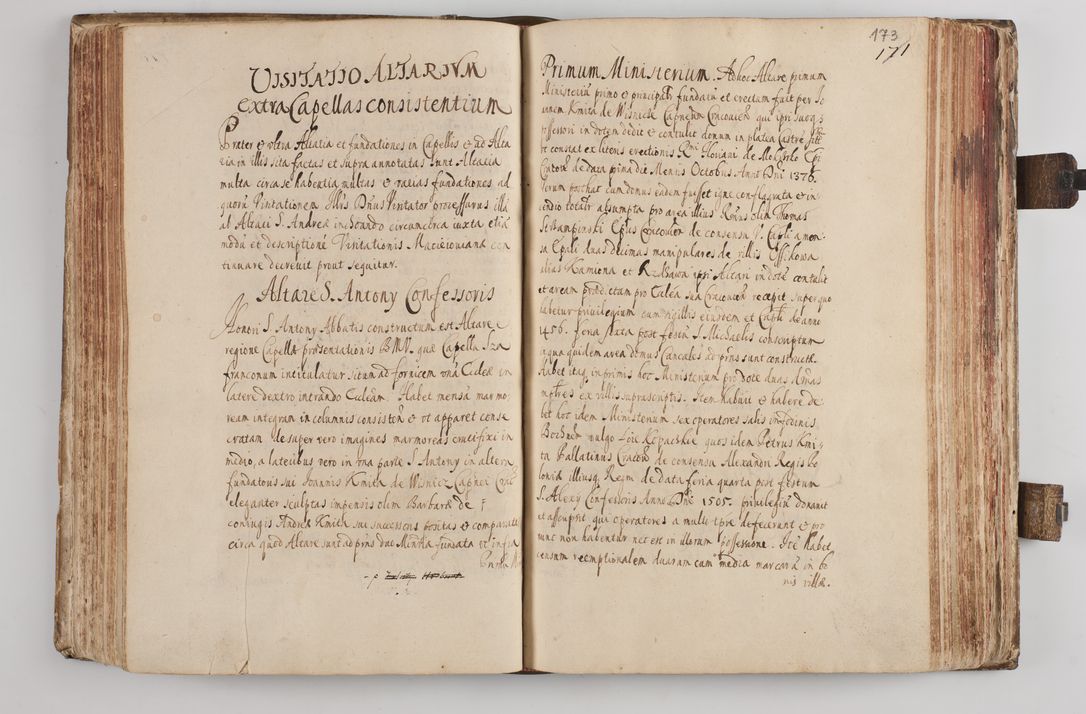 VISITATIO ALTARIVM
extra Capellas consistentium
Præter & vltra Altaria et fundationes in Capellis & ad Alta
ria in illis sita factas et supra annotatas sunt Altaria
multa circa se habentia multas & varias fundationes ad
quorū Visitationem Illris Dnus Visitator processurus illā
ab Altari S. Andreæ inchoando circumcirca iuxta etiā
modū et descriptionē Visitationis Macieiouianæ con
tinuare decreuit prout sequitur.
Altare S. Antony Confessoris
Honori S. Antony Abbatis constructum est Altare e
regione Capellæ præsentationis BMV. quæ Capella Sza
franconum intitulatur situm ad fornicem vnā Eccleæ in
latere dextro intrando Eccleam. Habet mensā marmo
ream integram in columnis consistentē & vt apparet conse
cratam desuper vero imagines marmoreas crucifixi in
medio, a lateribus vero in vna parte S. Antony in altera
fundatoris sui Joannis Kmita de Wisnicz Capnei Crac
eleganter sculptas impensis olim Barbaræ de
coniugis Andreæ Kmita sui successoris positas & comparatas
circa quod Altare sunt ad præns duo Minrīa fundata vt infra
Primū
173
171
Primum Ministerium. Ad hoc Altare primum
Ministeriū primo & principalr fundatū et erectum fuit per Jo
annem Kmita de Wisnicze Capneum Cracouien qui ipsi suoq;
possessori in dotem dedit & contulit domum in platea Castren sitā
vt constat ex literis erectionis Rmi Floriani de Mokrsko Epi
Cracouien de data prima die Mensis Octobris Anno Dni 1376.
Verum posthac cum domus eadem fuisset igne conflagrata & in
cendio totalr absumpta pro area illius Rmus olim Thomas
Strzampinski Epus Cracouien de consensu V. Capli a men
sa Epali duas decimas manipulares de villis Ossikowa
alias Kamiona et Rzbawa ipsi Altari in dotē contulit
et aream prædictam pro Ecclea sua Cracouien recepit super quo
habetur priuilegium cum sigillis eiusdem et Capli de anno
1456. feria sexta post festū S. Michaelis conscriptum
in qua quidem area domus Canoales ad præns sunt constructæ.
Habet itaq; inprimis hoc Ministerium pro dote duas dcimas
mplres ex villis suprascriptis. Item habuit & habere de
bet hoc idem Ministerium sex operatores salis in fodinis
Bochnen vulgo Loie Kopackie quos idem Petrus Kmi,
ta Pallatinus Cracouien de consensu Alexandri Regis Po
loniæ illiusq; Regm de data feria quarta post festum
S. Alexy Confessoris Anno Dni 1505. priuilegiū donauit
et asscripsit qui operatores a multo tpre defecerunt & pro
nunc non habentur nec est in illorum possessione. Itē habet
censum reemptionalem duarum cum media marcarū in bo
nis villæ.